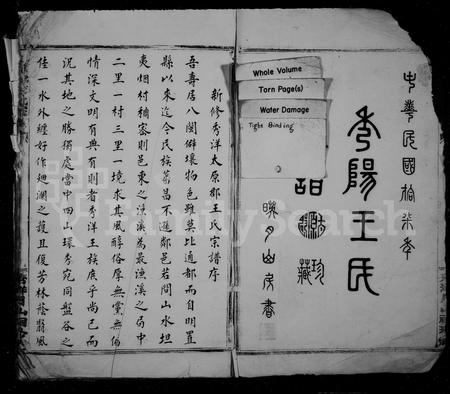 中華民國拾柒年
秀陽王氏
譜
珍藏
映月山房書
Whole Volume
Torn Page(s)
Water Damage
Tight Binding
新修秀洋太原郡王氏宗譜序
吾壽居八閩僻壤物色雖莫比通都而自明置
縣以來迄今民族蕃昌不遜鄰邑若問山水坦
夷烟村稠密則邑東之漁溪為最漁溪之局中
二里一村三里一境求其風醇俗厚無黨無偏
情深文明有典有則者秀洋王族庶乎尚已而
況其地之勝獨處當中四山環秀宛同盤谷之
佳一水外纏好作廻瀾之護且復芳林蔭翳風
FamilySearch